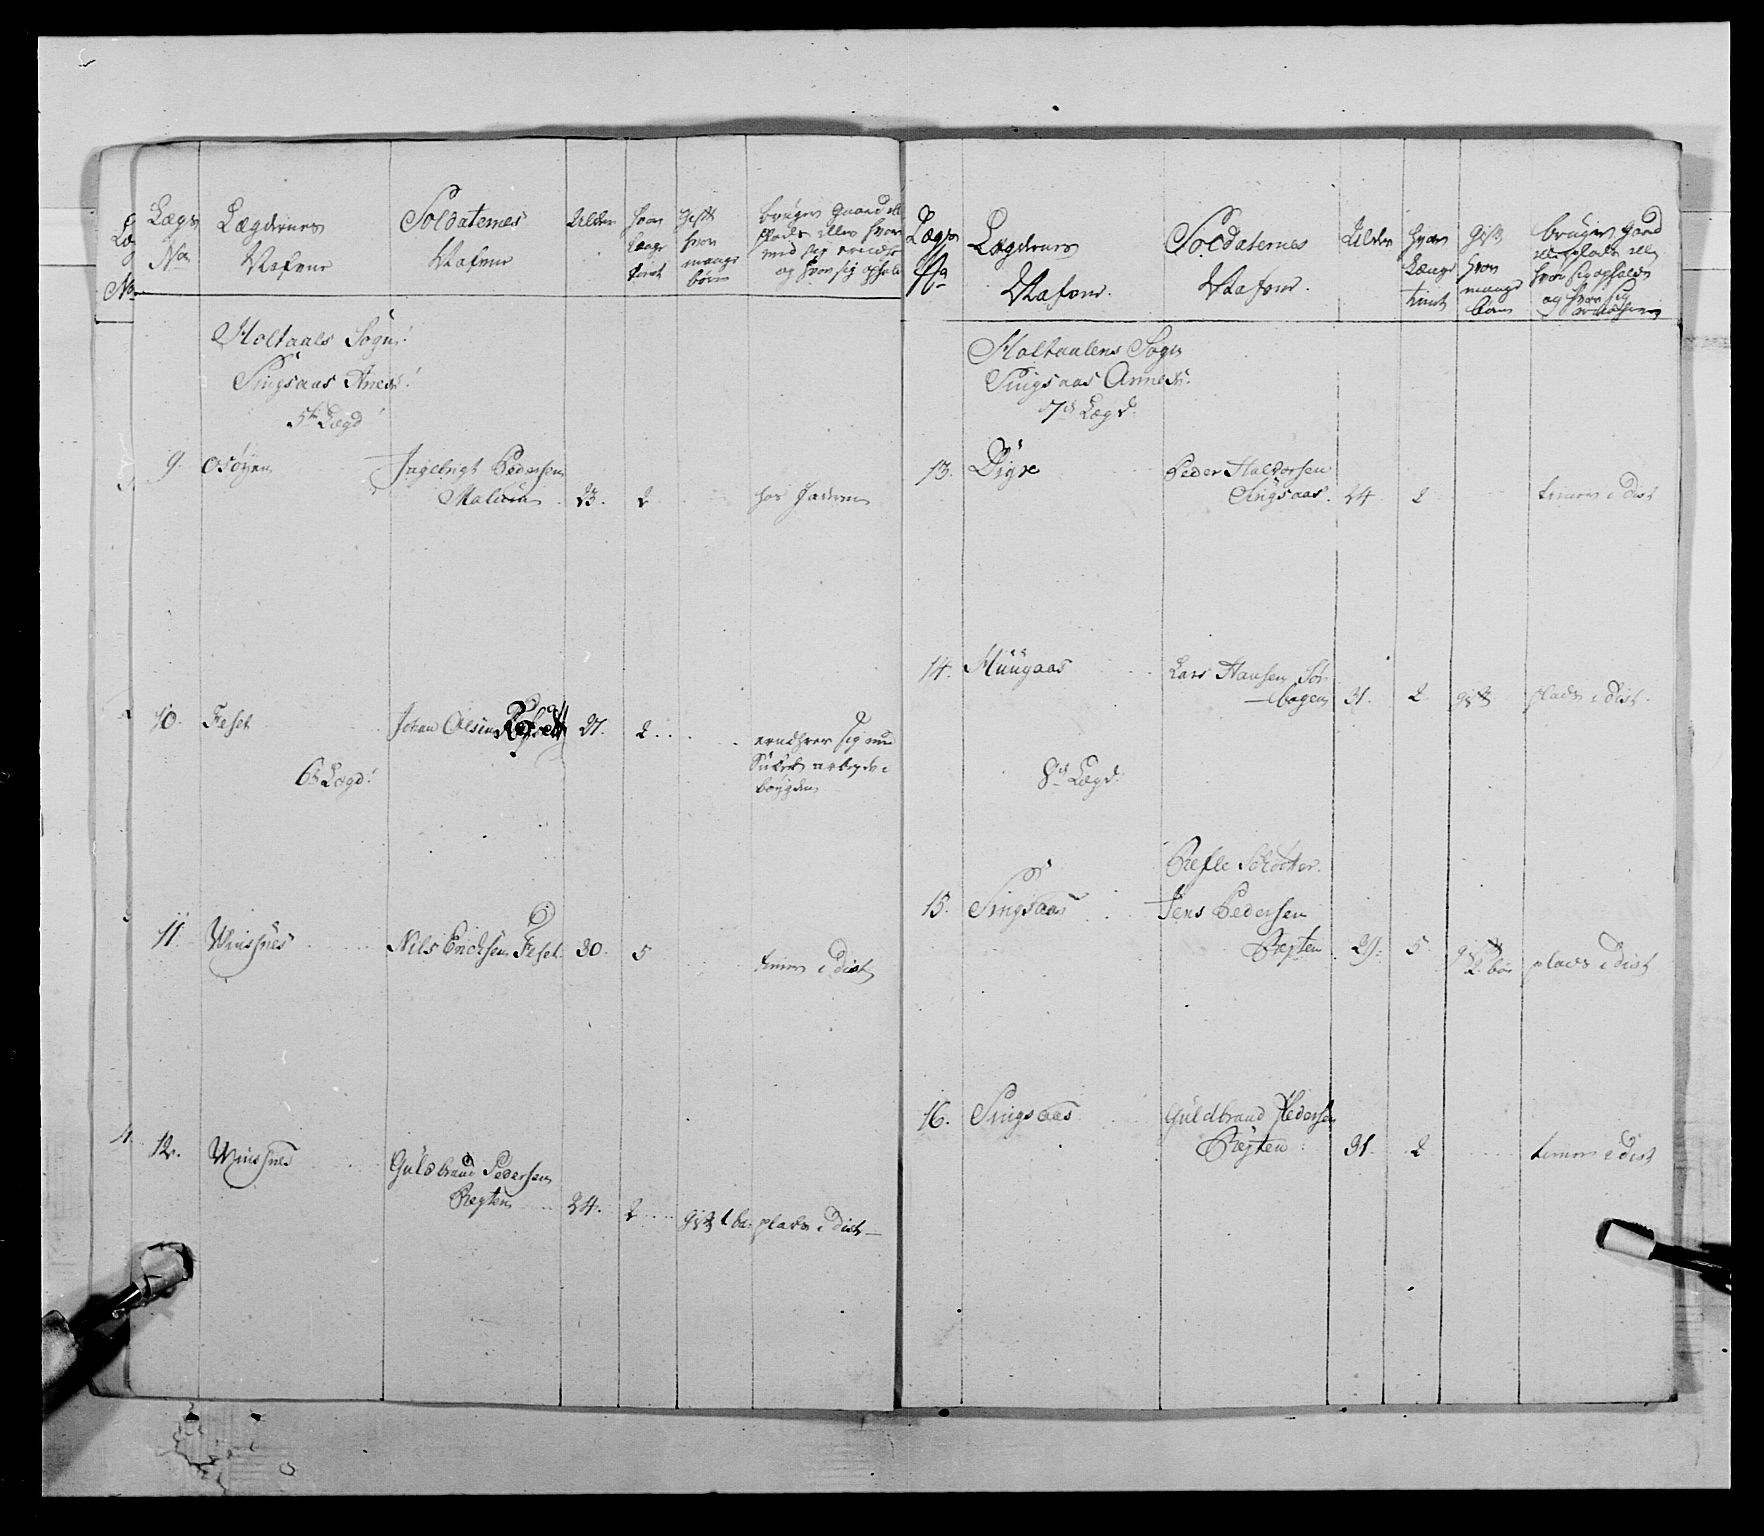 Lægs
No
Lægdernes
Nafne
Soldaternes
Nafne
Alder
hvor
Længe
tient
gift
hvor
mange
børn
bruger Gaard ell
plads eller hvor
med sig ernærer
og hvor sig ophol
Holtaals Sogn
Singsaas Anex
5te Lægd
9. Osøyen Ingebrigt Pedersen
23. 2 hos Faderen
10. Feset Johan Olsen 27. 2
ernærer sig med
arbeyde i
bøygden
6te Lægd
11. Winsnes Nils Erichsen Feset. 30. 5 tiener i Dist
12. Winsnes Guldbrand Pedersen
Reyten 24. 2 gift 1 ba. plads i Dist
Lægs
No
Lægdernes
Nafne.
Soldaternes
Nafne.
Alder
hvor
Længe
tient
Gift
hvor
mange
børn
bruger Gaard
eller plads ell
hvor sig opholder
og hvor sig
ernærer
Holtaalens Sogn
Singsaas Annex.
7de Lægd.
13. Digre Peder Halvorsen
Singsaas. 24. 2 tiener i Dist
14. Muugaas Lars Hansen Sør-
hagen 31. 2. gift plads i Dist.
8de Lægd.
15. Singsaas Jens Pedersen
Reyten 29. 5. gift
2 bør plads i Dist
16. Singsaas Guldbrand Pedersen
Reyten 31. 2 tiener i Dist